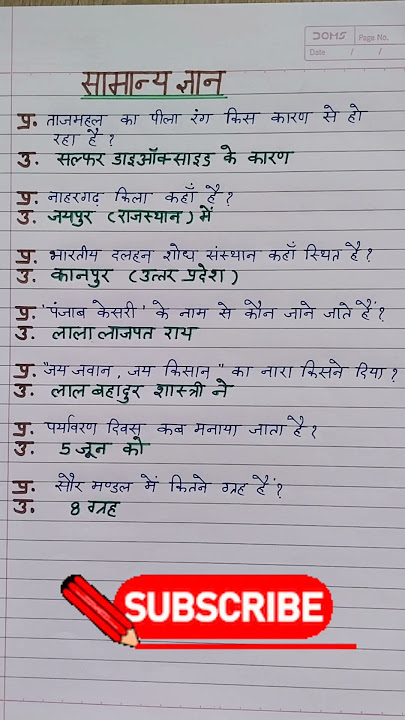 DOMS
Page No.
Date / /
सामान्य ज्ञान
प्र. ताजमहल का पीला रंग किस कारण से हो
रहा है ?
उ. सल्फर डाइऑक्साइड के कारण
प्र. नाहरगढ़ किला कहाँ है ?
उ. जयपुर (राजस्थान) में
प्र. भारतीय दलहन शोध संस्थान कहाँ स्थित है ?
उ. कानपुर (उत्तर प्रदेश)
प्र. 'पंजाब केसरी' के नाम से कौन जाने जाते हैं ?
उ. लाला लाजपत राय
प्र. "जय जवान, जय किसान" का नारा किसने दिया ?
उ. लाल बहादुर शास्त्री ने
प्र. पर्यावरण दिवस कब मनाया जाता है ?
उ. 5 जून को
प्र. सौर मण्डल में कितने ग्रह हैं ?
उ. 8 ग्रह
SUBSCRIBE